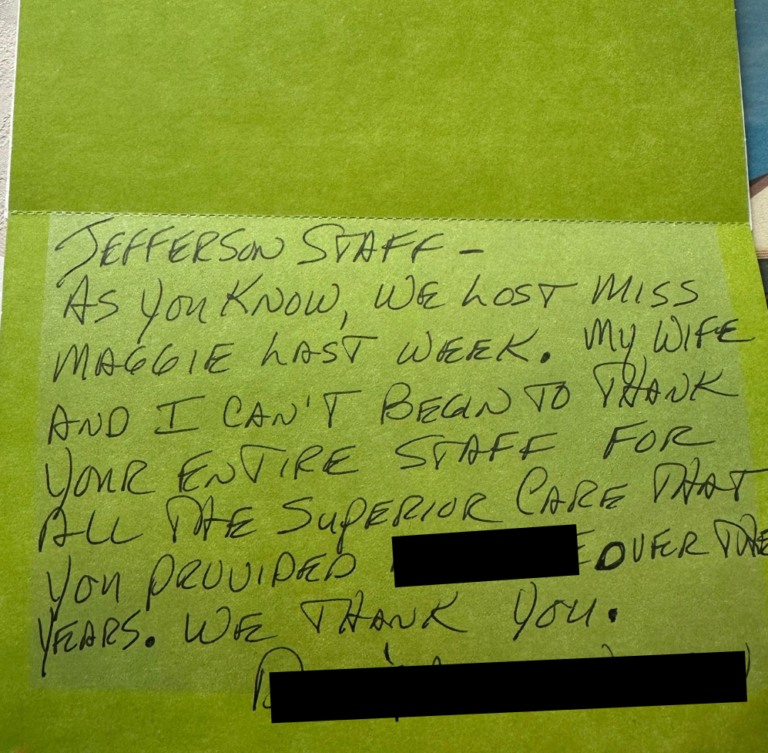 JEFFERSON STAFF -
AS YOU KNOW, WE LOST MISS
MAGGIE LAST WEEK. MY WIFE
AND I CAN'T BEGIN TO THANK
YOUR ENTIRE STAFF FOR
ALL THE SUPERIOR CARE THAT
YOU PROVIDED OVER THE
YEARS. WE THANK YOU.